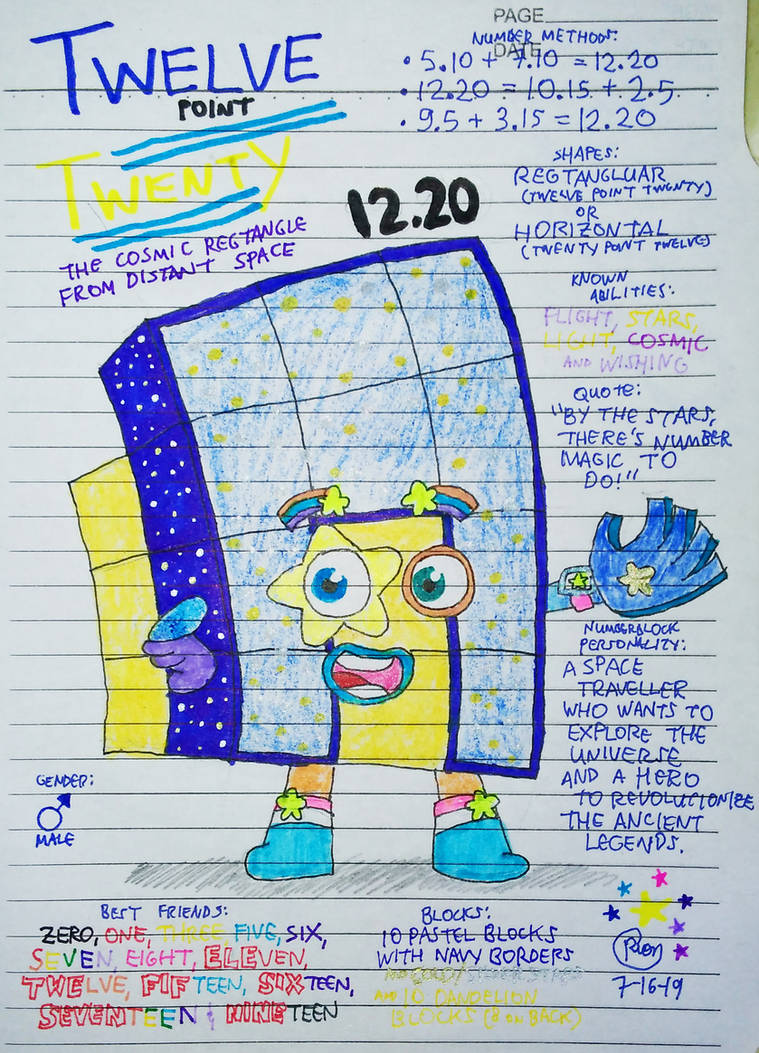 PAGE
DATE
TWELVE
POINT
TWENTY
THE COSMIC REGTANGLE
FROM DISTANT SPACE
NUMBER METHODS:
• 5.10 + 7.10 = 12.20
• 12.20 = 10.15 + 2.5
• 9.5 + 3.15 = 12.20
12.20
SHAPES:
REGTANGLUAR
(TWELVE POINT TWENTY)
OR
HORIZONTAL
(TWENTY POINT TWELVE)
KNOWN
ABILITIES:
FLIGHT, STARS,
LIGHT, COSMIC
AND WISHING
QUOTE:
"BY THE STARS,
THERE'S NUMBER
MAGIC TO
DO!"
NUMBERBLOCK
PERSONALITY:
A SPACE
TRAVELLER
WHO WANTS TO
EXPLORE THE
UNIVERSE
AND A HERO
TO REVOLUTIONIZE
THE ANCIENT
LEGENDS.
GENDER:
MALE
BEST FRIENDS:
ZERO, ONE, THREE, FIVE, SIX,
SEVEN, EIGHT, ELEVEN,
TWELVE, FIFTEEN, SIXTEEN,
SEVENTEEN & NINETEEN
BLOCKS:
10 PASTEL BLOCKS
WITH NAVY BORDERS
AND GOLD/SILVER STARS
AND 10 DANDELION
BLOCKS (8 ON BACK)
7-16-19